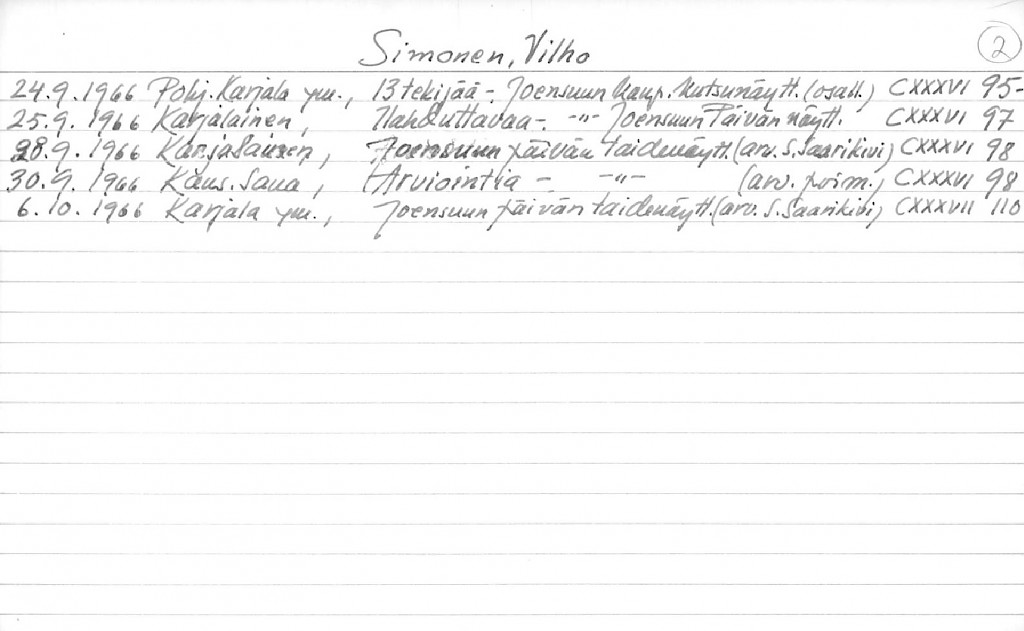 Simonen, Vilho
2
24.9.1966 Pohj. Karjala ym., 13 tekijää - Joensuun kaup. kutsunäytt. (osall.) CXXXVI 95-
25.9.1966 Karjalainen, Ilahduttavaa - -"- Joensuun Päivän näytt. CXXXVI 97
28.9.1966 Karjalainen, Joensuun päivän taidenäytt. (arv. S. Saarikivi) CXXXVI 98
30.9.1966 Kans. Sana, Arviointia - -"- (arv. poim.) CXXXVI 98
6.10.1966 Karjala ym., Joensuun päivän taidenäytt. (arv. S. Saarikivi) CXXXVII 110